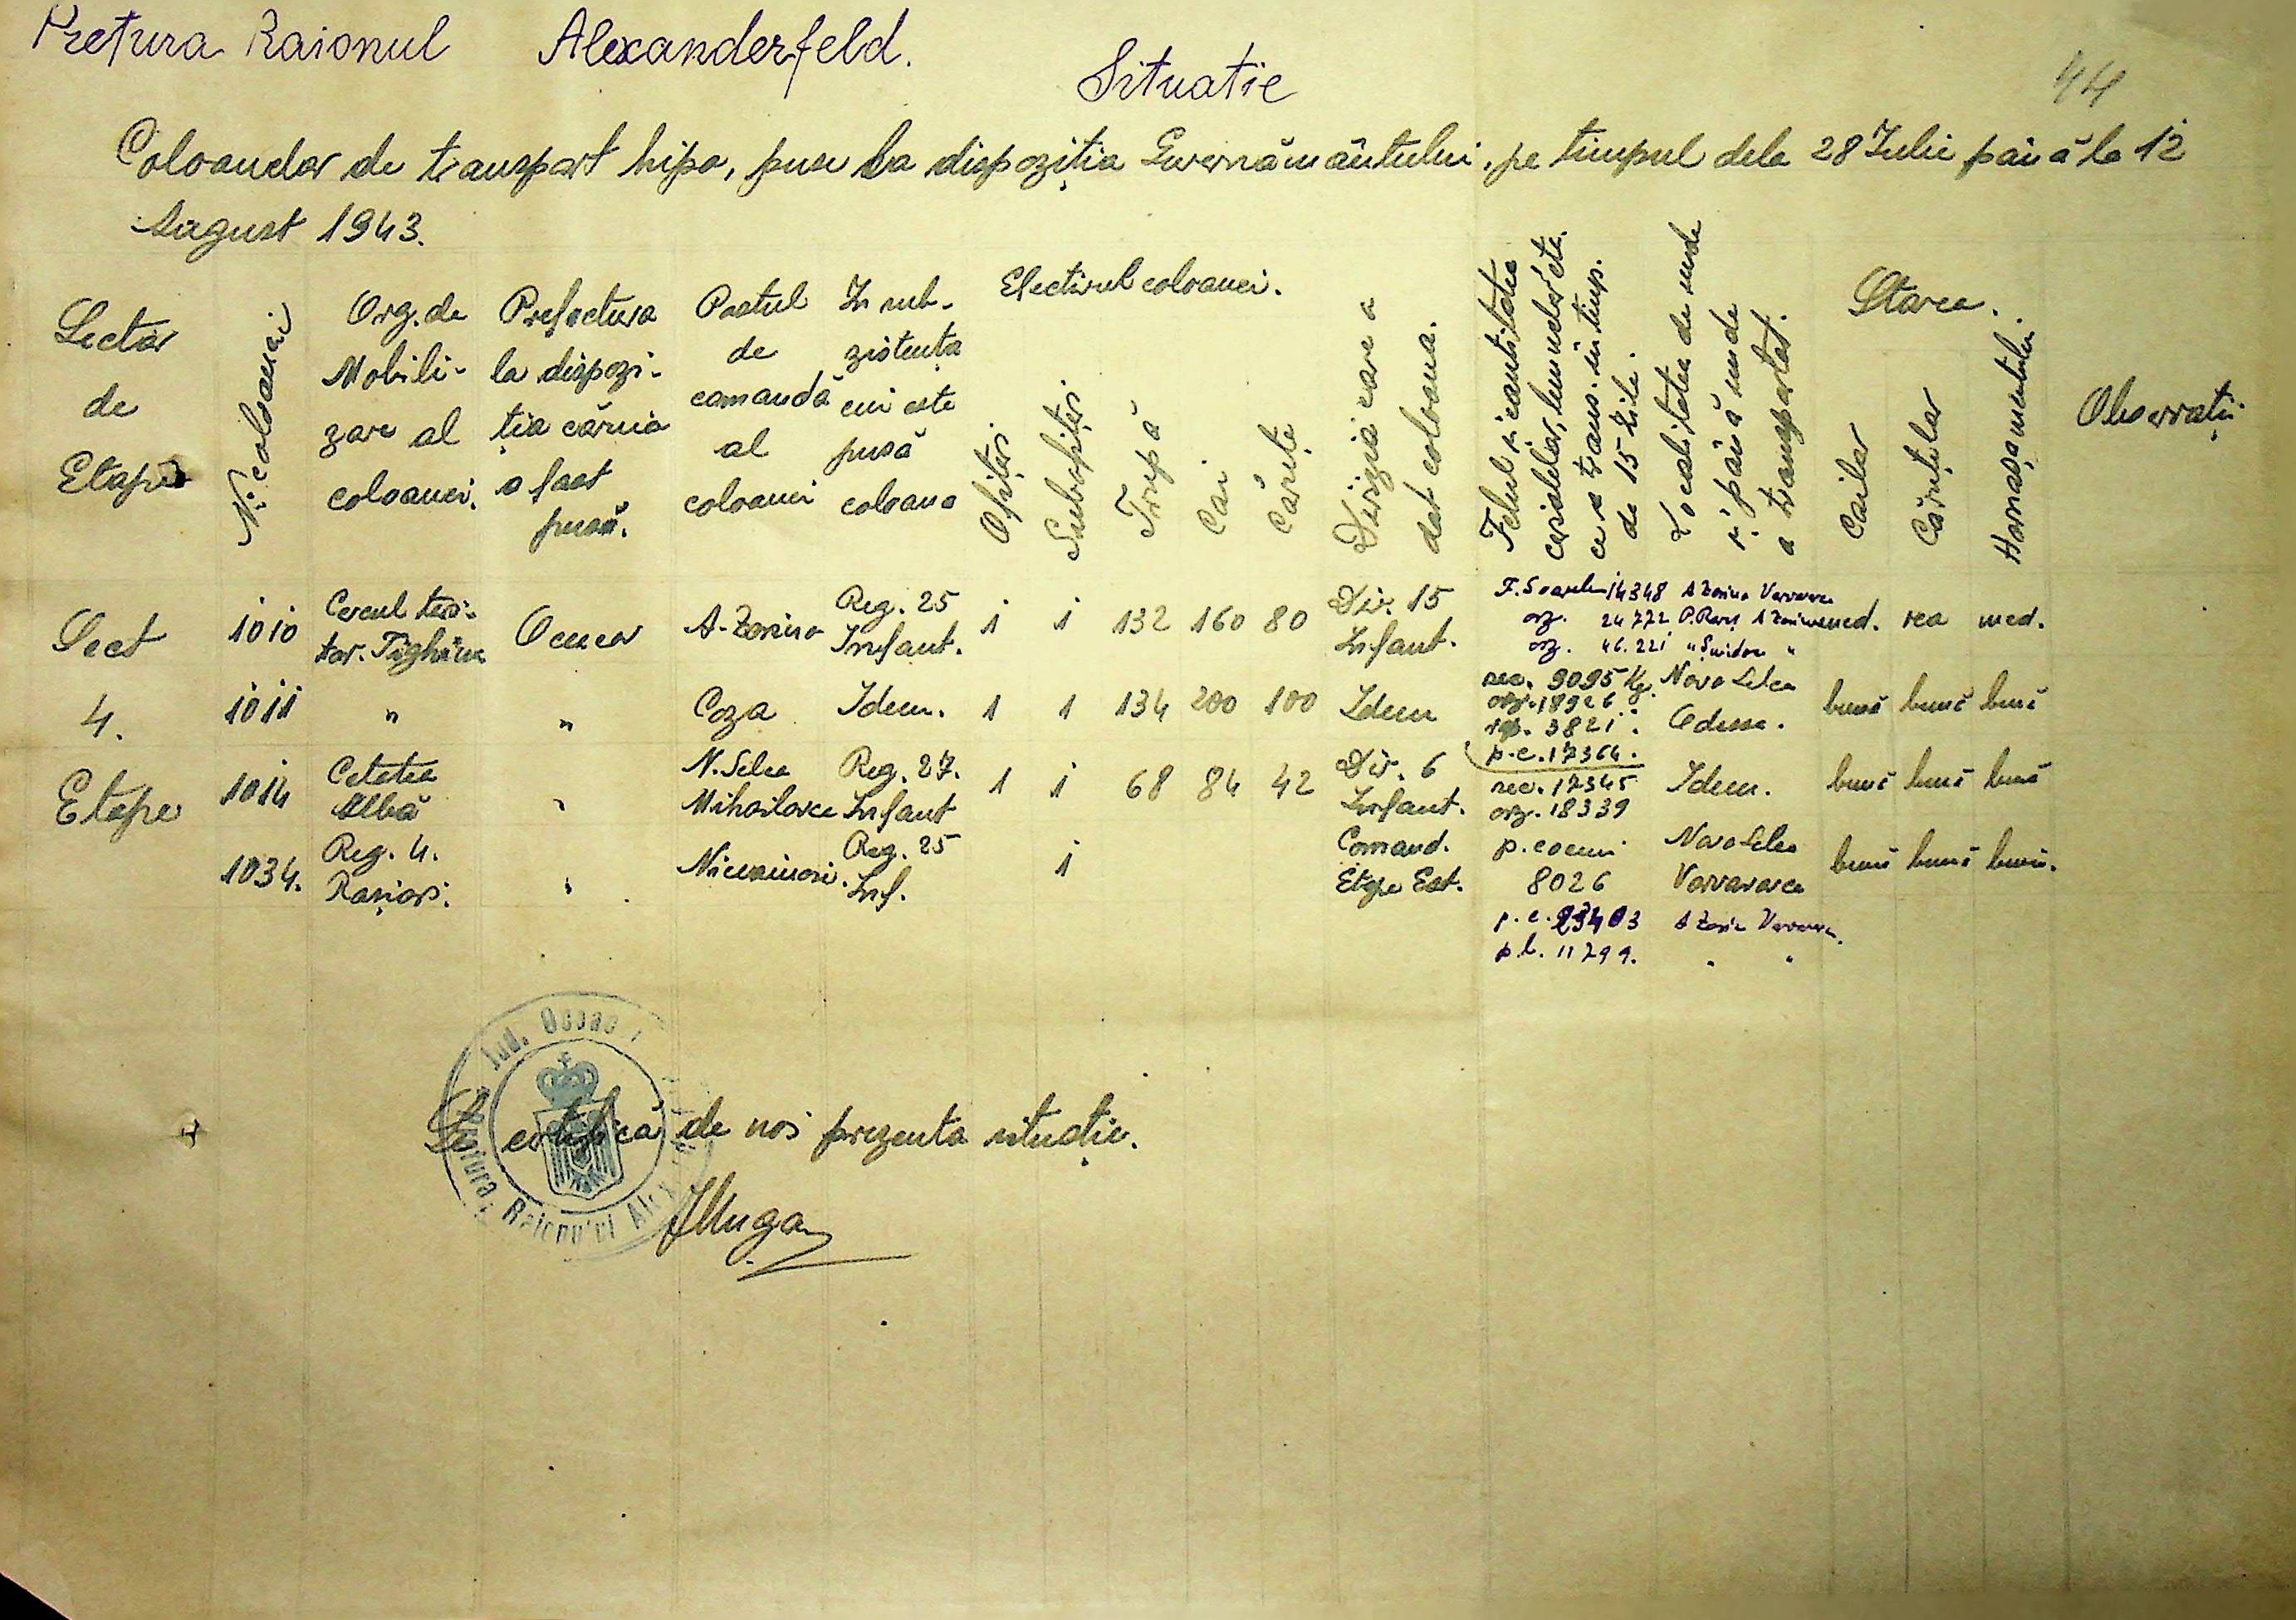 Pretura Raionul Alexanderfeld.
Situatie
44
Coloanelor de transport hipo, puse la dispoziția Guvernământului, pe timpul dela 28 Iulie până la 12
August 1943.
Sector
de
Etape
Nr. coloanei
Org. de
Mobili-
zare al
coloanei.
Prefectura
la dispozi-
ția căruia
a fost
pusă.
Postul
de
comandă
al
coloanei
In sub-
zistența
cui este
pusă
coloana
Efectivul coloanei.
Ofițeri
Subofițeri
Trupă
Cai
Căruțe
Divizia care a
dat coloana.
Felul și cantitatea
cerialelor, lemnelor etc.
ce s'a trans. în timp.
de 15 zile.
Localitatea de unde
și până unde
a transportat.
Starea.
Cailor
Căruțelor
Harnașamentului
Observații
Sect
4.
Etape
1010
Cercul teri-
tor. Tighina
Oceacov
A-Zorino
Reg. 25
Infant.
1 1 132 160 80
Div. 15
Infant.
F. Soarelui 14348 A Zorino Varvarovca
orz. 24772
orz. 46.221 " "
med. rea med.
1011 " " Coza Idem. 1 1 134 200 100 Idem
sec. 9095 Kg. Novo Selca
orz. 18926 "
3821 " Odessa.
bună bună bună
1014
Cetatea
Albă
"
N. Selca
Mihailovca
Reg. 27.
Infant
1 1 68 84 42
Div. 6
Infant.
p.c. 17364.
sec. 12345
orz. 18339
Idem.
bună bună bună
1034.
Reg. 4.
Roșiori.
"
Reg. 25
Inf.
1
Comand.
Etape Est.
p. cocuri
8026
Novo Selca
Varvarovca
bună bună bună.
p. c. 23403 A Zorino Varvarovca.
p. l. 11299. " "
Se certifică de noi prezenta situație.
Jud. Oceac
Pretura Raionului Alex